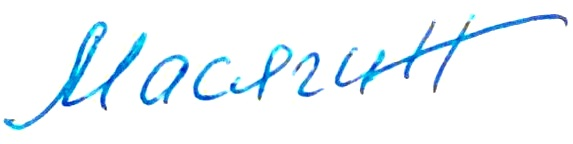 Масягин